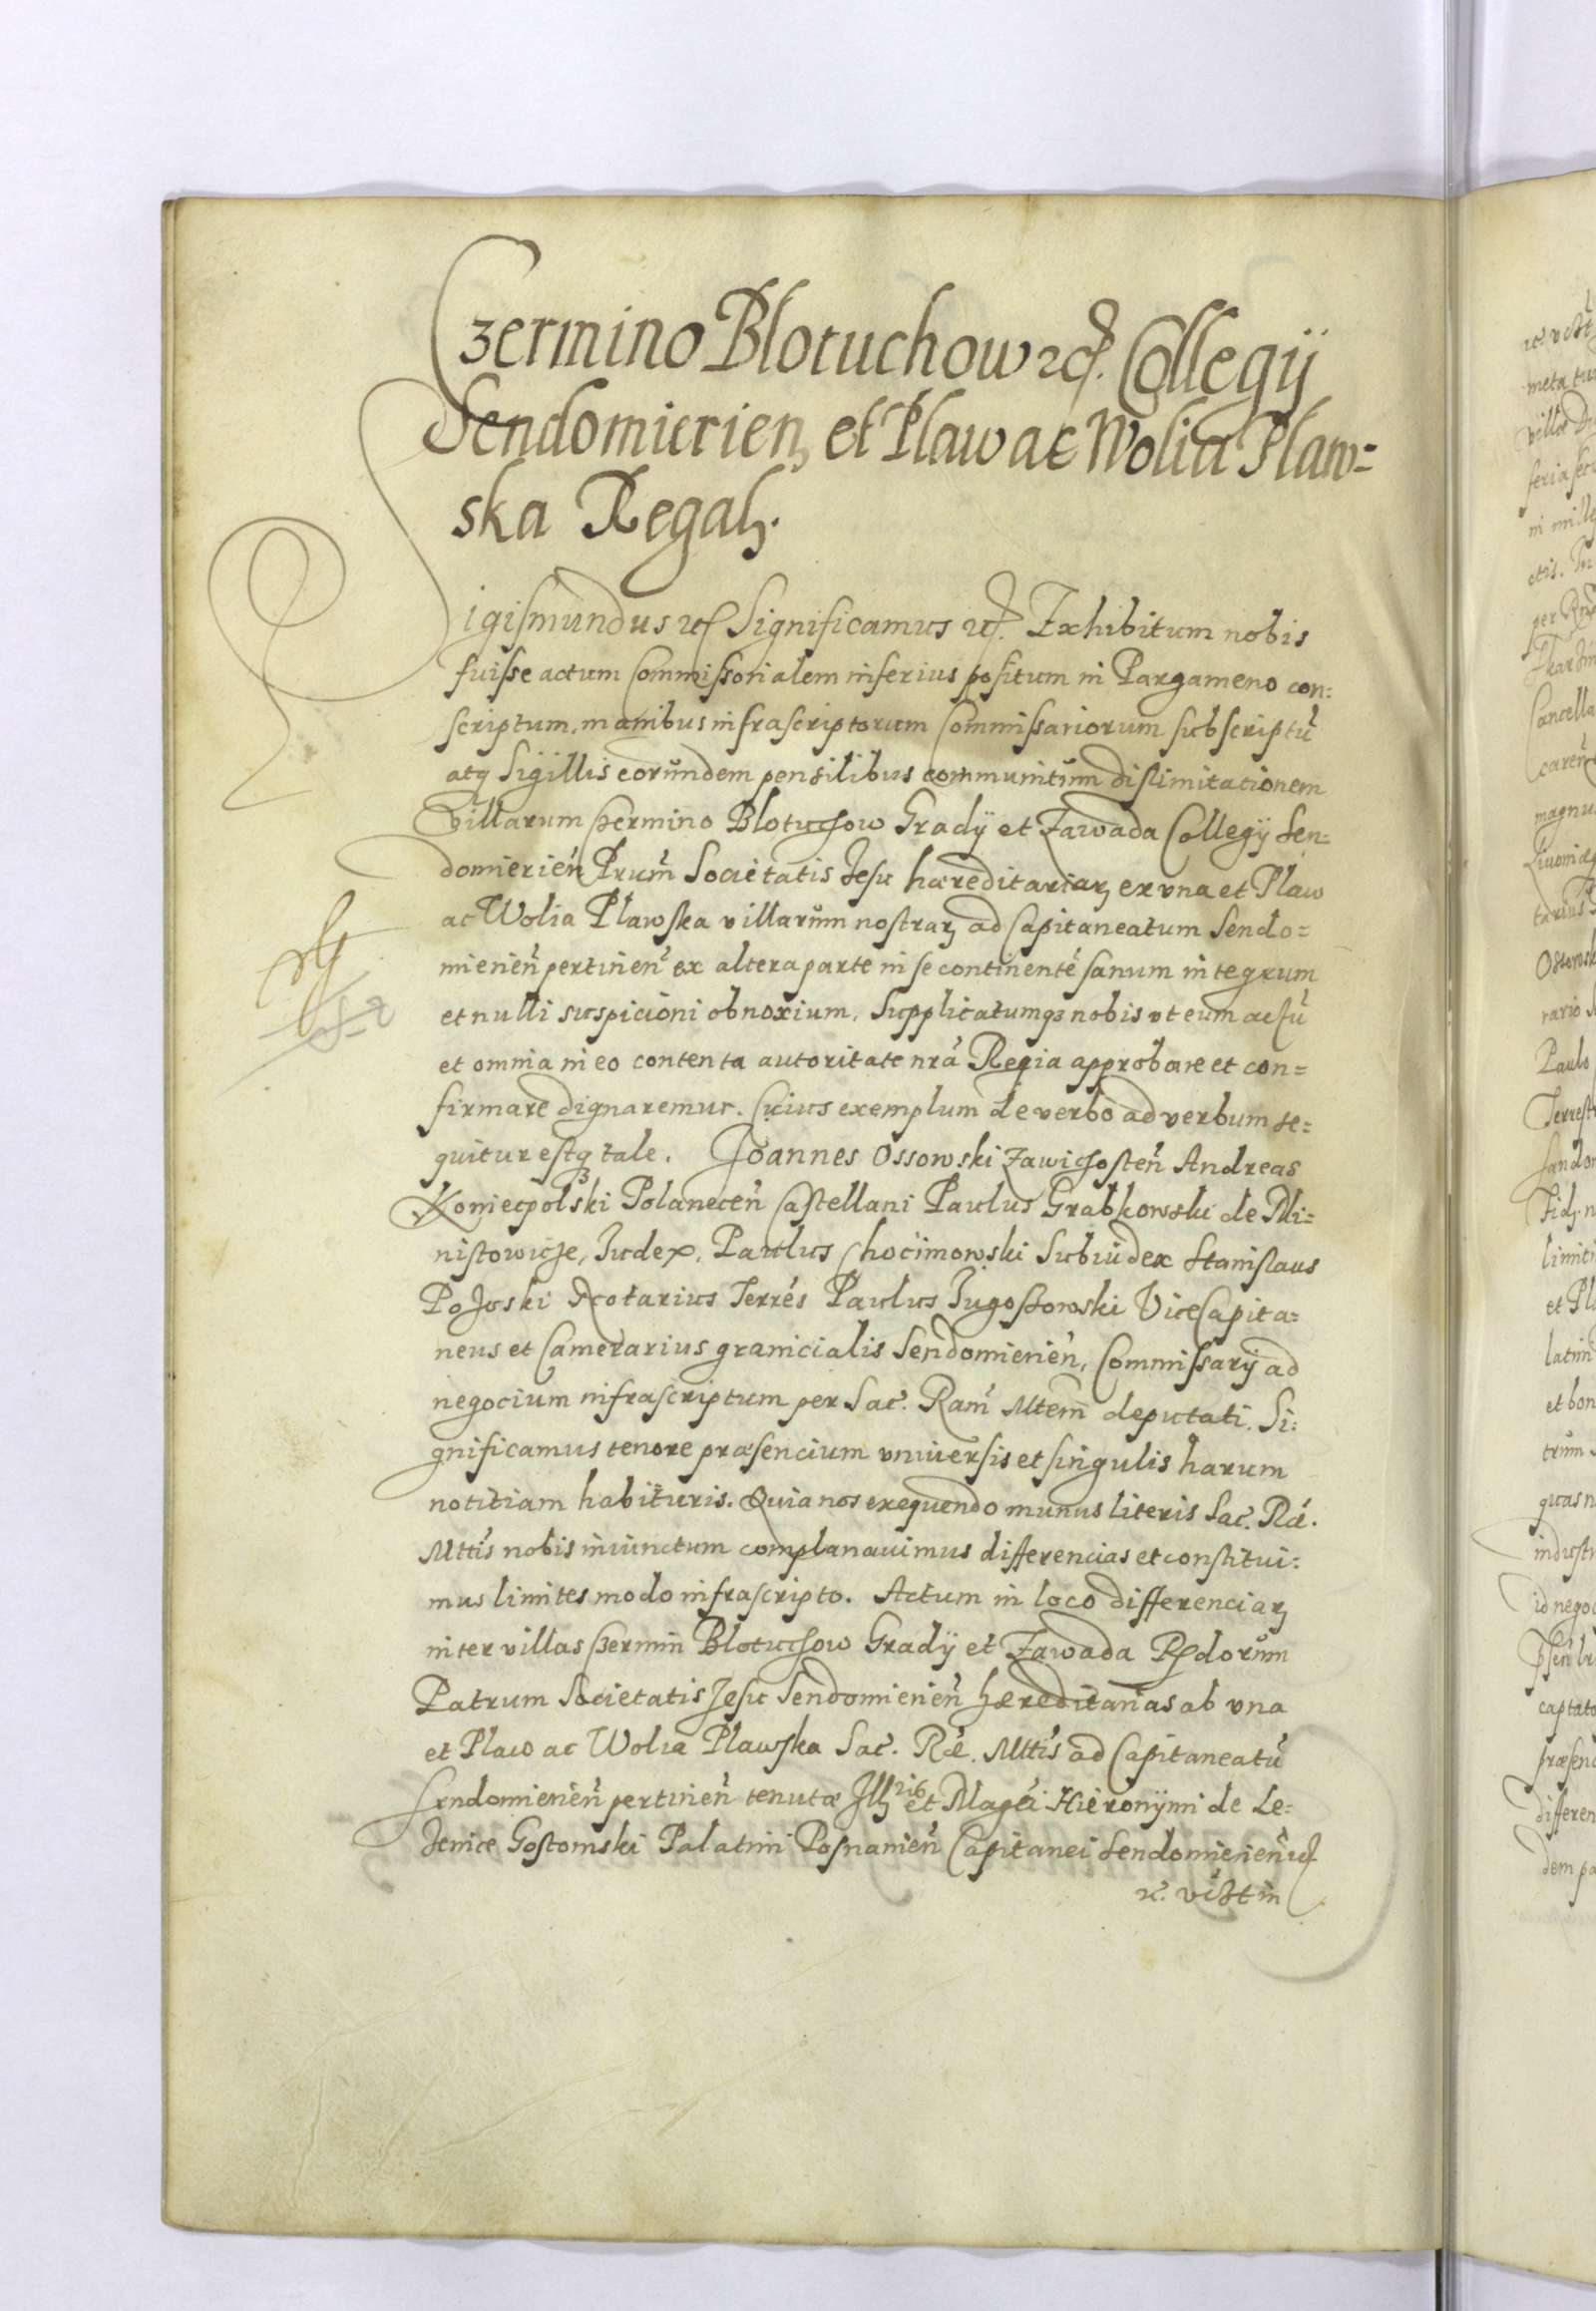 Czermino Blotuchow etc. Collegÿ
Sendomirien, et Plaw ac Wolia Plaw=
ska Regal.
Sigismundus etc Significamus etc. Exhibitum nobis
fuisse actum Commissorialem inferius positum in Pargameno con:
scriptum, manibus infrascriptorum Commissariorum subscriptū
atq Sigillis eorundem pensilibus communitum dislimitacionem
Villarum Czermino Blotuchow Gradÿ et Zawada Collegÿ Sen=
domirien Prum Societatis Jesu hæreditariar ex vna et Plaw
ac Wolia Plawska villarum nostrar ad Capitaneatum Sendo=
mirien pertinen ex altera parte in se continente sanum integrum
et nulli suspicioni obnoxium, Supplicatumq nobis vt eum actū
et omnia in eo contenta autoritate nra Regia approbare et con=
firmare dignaremur. Cuius exemplum de verbo ad verbum se=
quitur estq tale. Joannes Ossowski Zawichosten Andreas
Koniecpolski Polanecen Castellani Paulus Grabkowski de Mi=
nistowicze, Judex, Paulus Chocimowski Subiudex Stanislaus
Notarius Terres Paulus Jugoszowski ViceCapita=
neus et Camerarius granicialis Sendomirien, Commissarÿ ad
negocium infrascriptum per Sac. Ram Mtem deputati. Si:
gnificamus tenore præsencium vniuersis et singulis harum
notitiam habituris. Quia nos exequendo munus literis Sac. Ræ.
Mttis nobis iniunctum complanauimus differencias et constitui:
mus limites modo infrascripto. Actum in loco differenciar
inter villas Czermin Blotuchow Gradÿ et Zawada Rdorum
Patrum Societatis Jesu Sendomirien hæreditarias ab vna
et Plaw ac Wolia Plawska Sac. Ræ. Mttis ad Capitaneatū
Sendomirien pertinen tenutæ Illris et Magci Hieronÿmi de Le=
zenice Gostomski Palatini Posnanien Capitanei Sendomirien etc
etc.